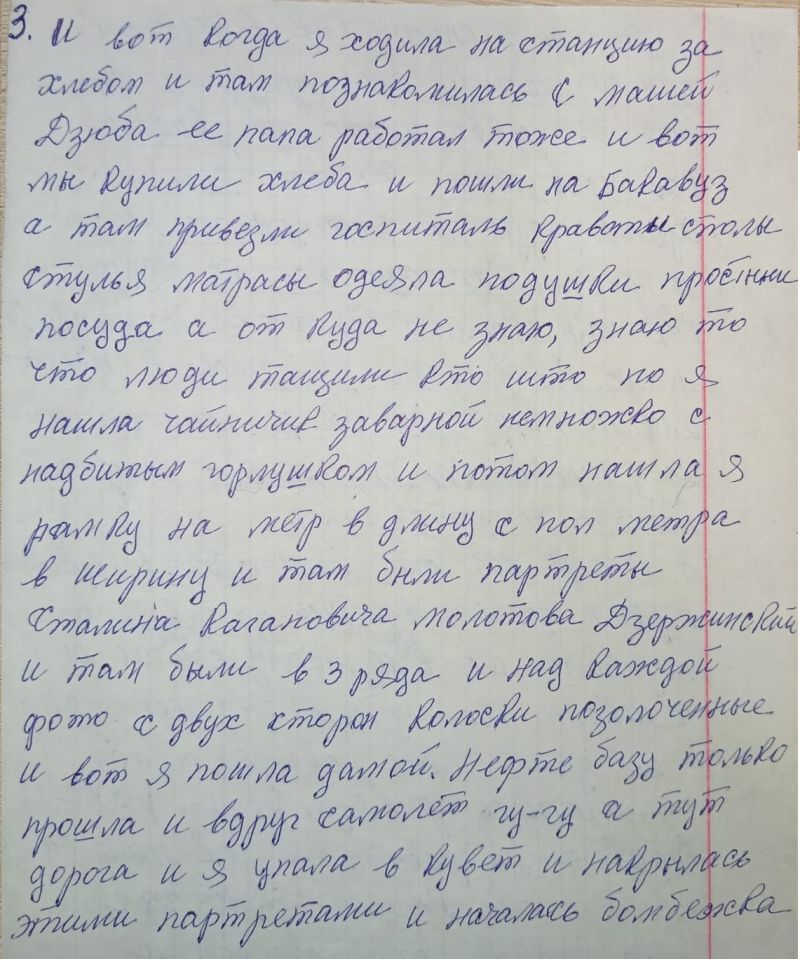 3. И вот когда я ходила на станцию за
хлебом и там познакомилась с машей
Дзюба ее папа работал тоже и вот
мы купили хлеба и пошли на Бакавуз
а там привезли госпиталь краваты столы
стулья матрасы одеяла подушки простнни
посуда а от куда не знаю, знаю то
что люди тащили кто што но я
нашла чайничик заварной немножко с
надбитым горлушком и потом нашла я
рамку на метр в длину с пол метра
в ширину и там были партреты
Сталина Кагановича молотова Дзержинский
и там были в 3 ряда и над каждой
фото с двух сторон колоски позолоченные
и вот я пошла дамой. Нефте базу только
прошла и вдруг самолёт гу-гу а тут
дорога и я упала в кувет и накрылась
этими партретами и началась бомбежка